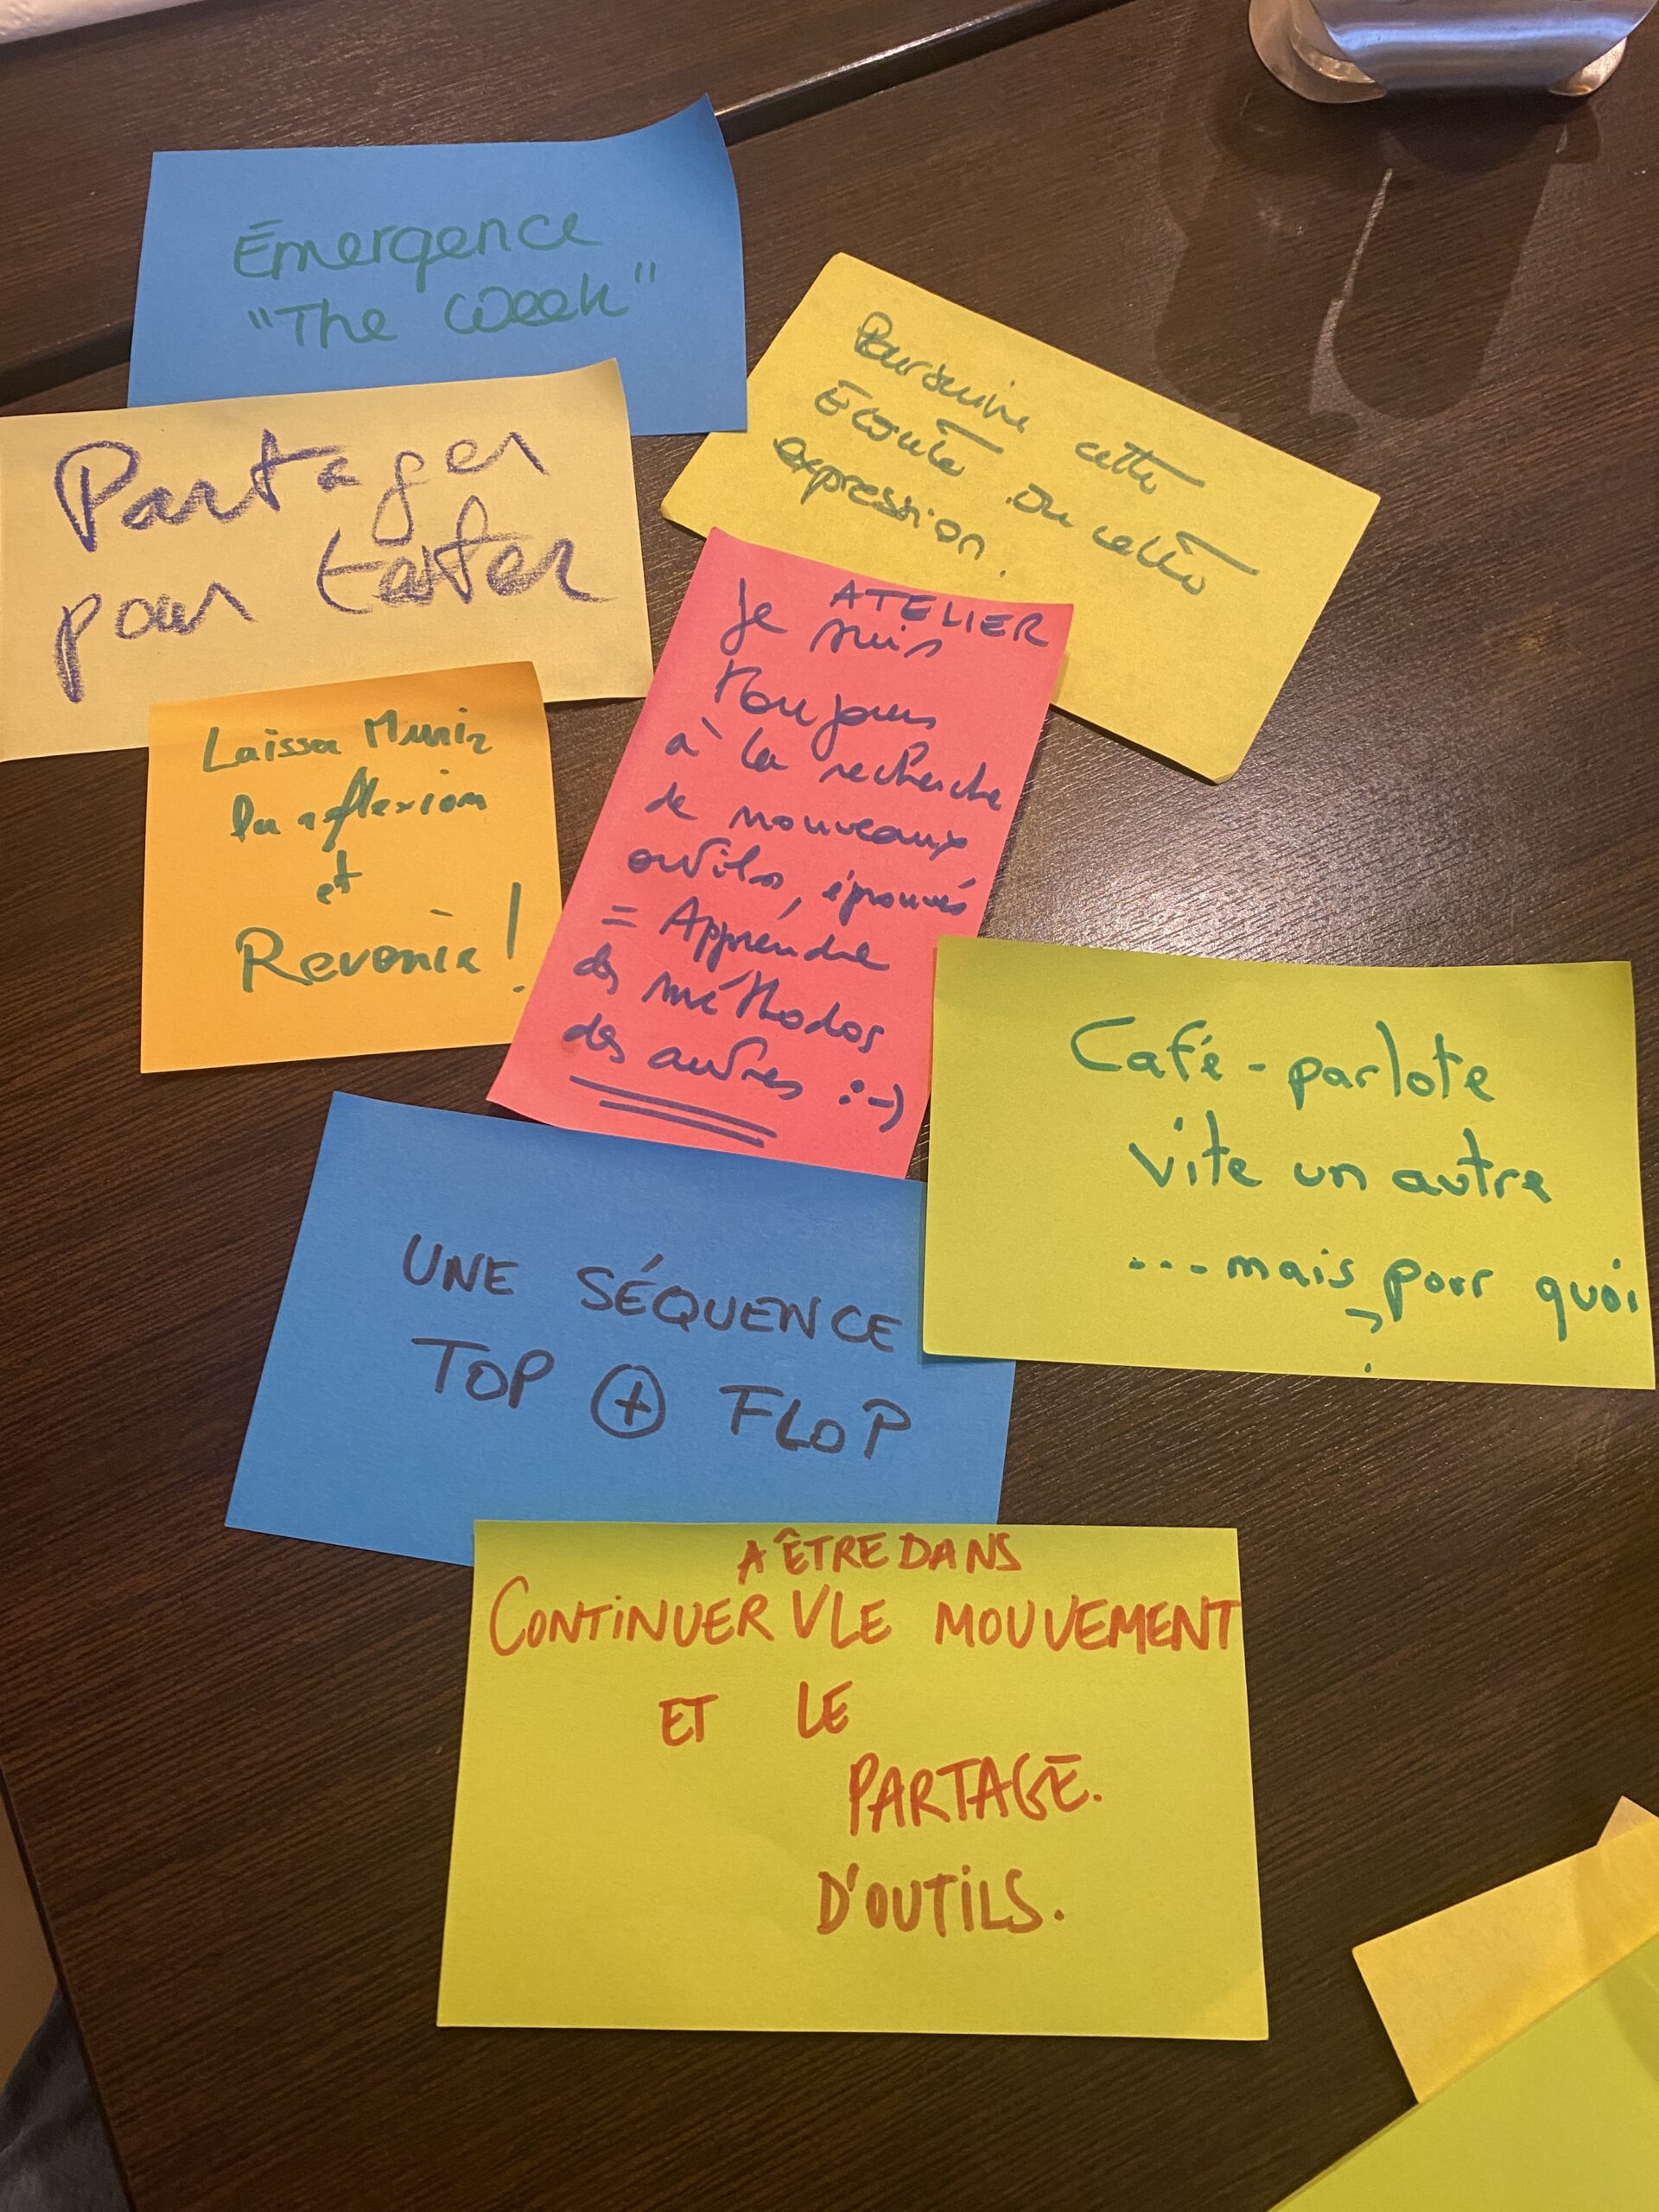 Émergence
"The Week"
Poursuivre cette
Ecoute ou cette
expression.
Partager
pour tester
ATELIER
Je suis
toujours
à la recherche
de nouveaux
outils, éprouvés
= Apprendre
des méthodos
des autres :-)
Laisser Murir
la réflexion
et
Revenir !
Café-parlote
vite un autre
...mais pour quoi
?
UNE SÉQUENCE
TOP + FLOP
A ÊTRE DANS
CONTINUER V LE MOUVEMENT
ET LE
PARTAGE.
D'OUTILS.